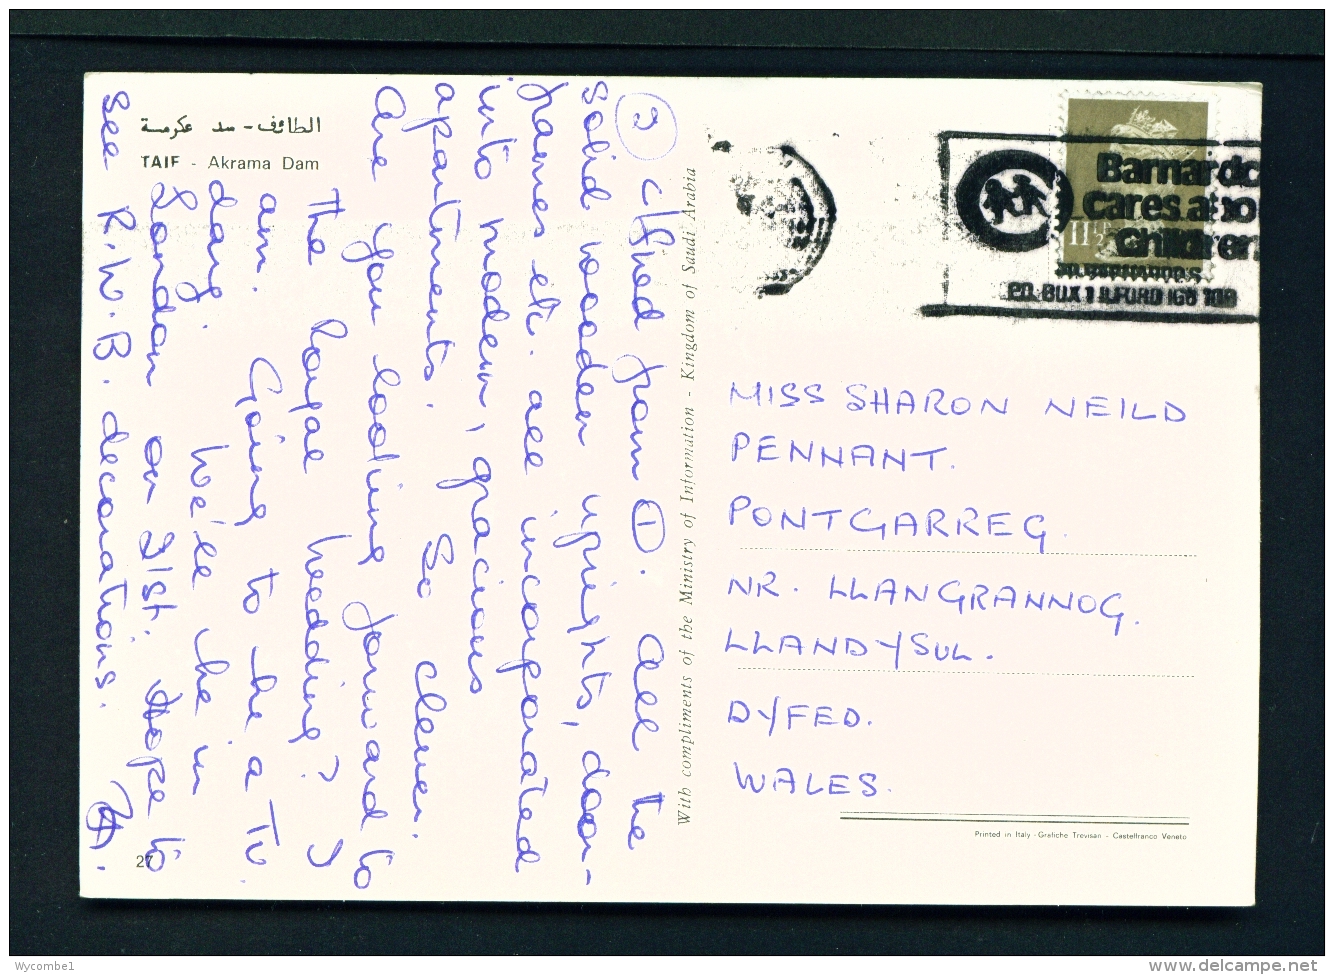 الطائف - سد عكرمة
TAIF - Akrama Dam
② cfined from ①. All the
solid wooden uprights, door-
frames etc. are incorporated
into modern, gracious
apartments. So clever.
Are you looking forward to
the Royal Wedding? I
am. Going to be a TV
day. We'll be in
London on 31st. Hope to
see R.W.B. decorations.
27
With compliments of the Ministry of Information - Kingdom of Saudi Arabia
Barnardo
Cares abo
Children
P.O. BOX 1 ILFORD IG6 1QQ
11½P
MISS SHARON NEILD
PENNANT.
PONTGARREG.
NR. LLANGRANNOG.
LLANDYSUL.
DYFED.
WALES.
Printed in Italy - Grafiche Trevisan - Castelfranco Veneto
Wycombe1
www.delcampe.net